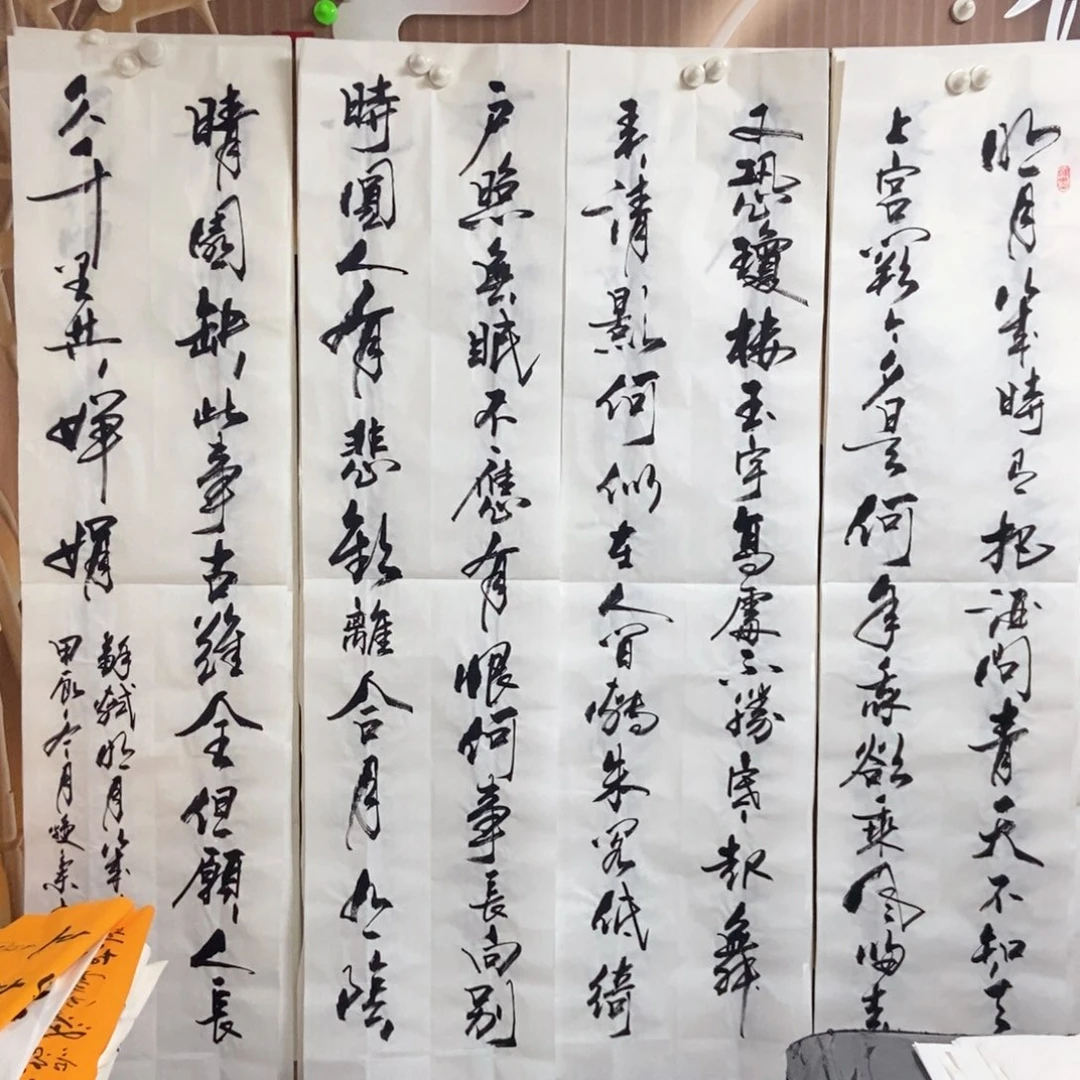 明月幾時有把酒問青天不知天
上宮闕今夕是何年我欲乘風歸去
又恐瓊樓玉宇高處不勝寒起舞
弄清影何似在人間轉朱閣低綺
戶照無眠不應有恨何事長向別
時圓人有悲歡離合月有陰
晴圓缺此事古難全但願人長
久千里共嬋娟
蘇軾明月幾
甲辰冬月